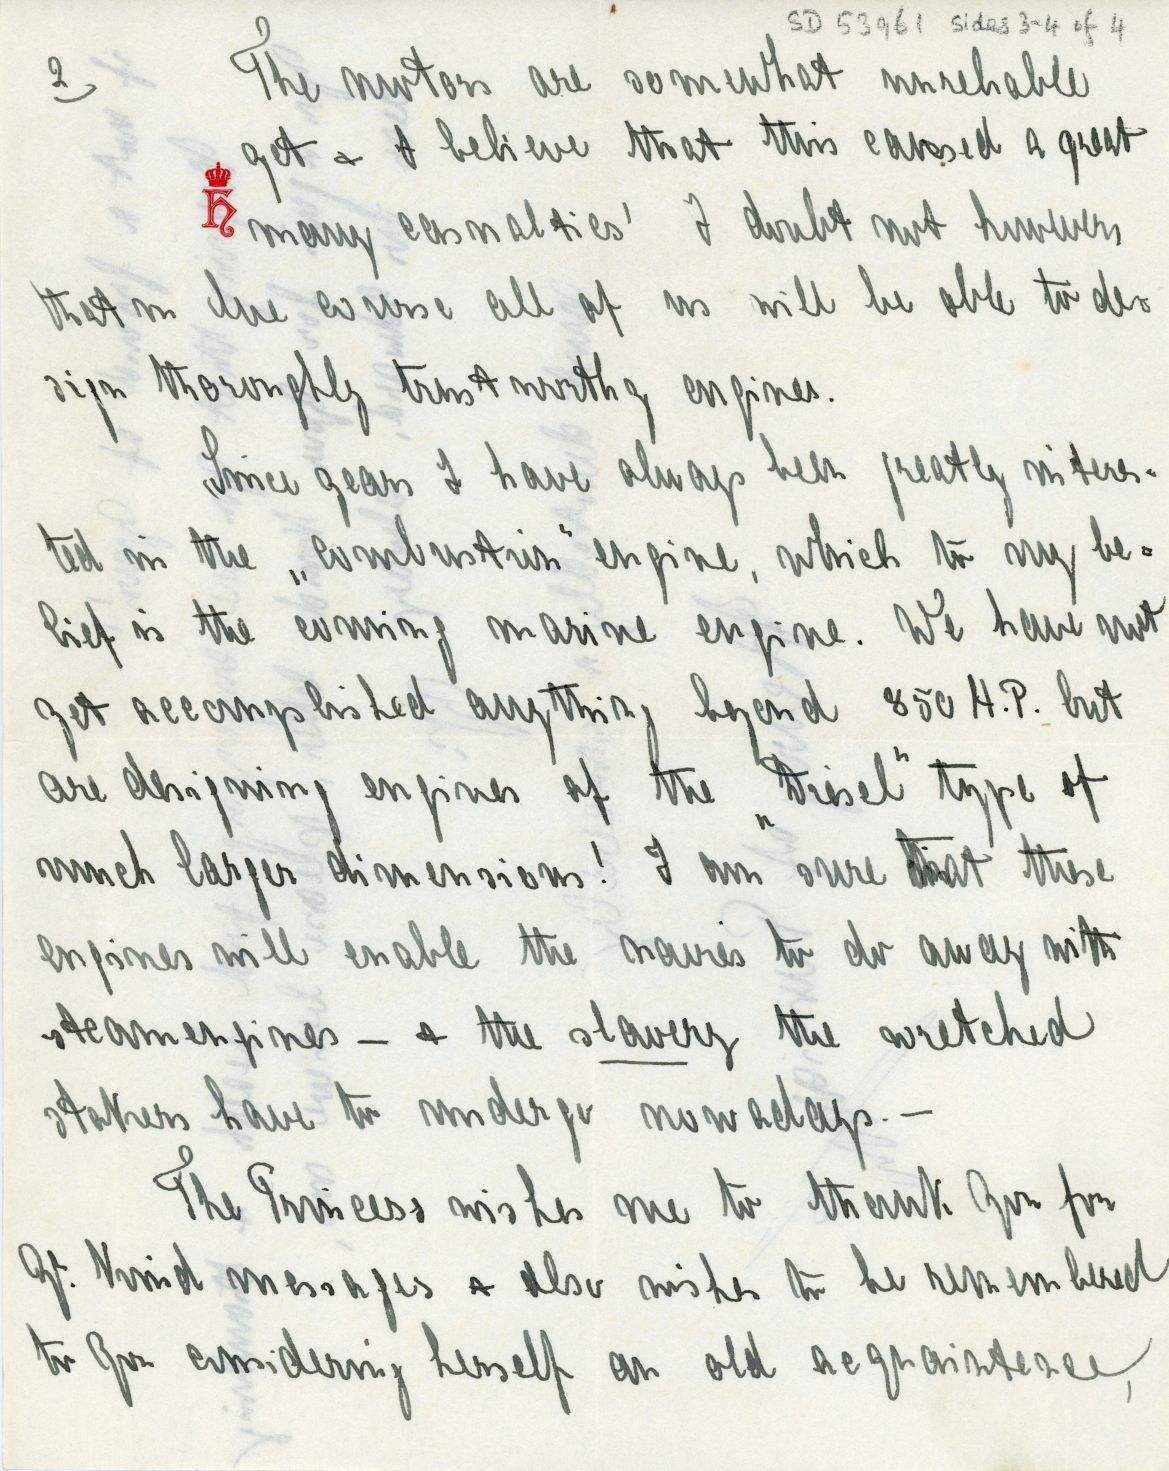 SD 53961 sides 3-4 of 4
2
The motors are somewhat unreliable
yet & I believe that this caused a great
H
many casualties! I doubt not however
that in due course all of us will be able to de-
sign thoroughly trustworthy engines.
Since years I have always been greatly interes-
ted in the „combustion" engine, which to my be-
lief is the coming marine engine. We have not
yet accomplished anything beyond 850 H.P. but
are designing engines of the „Diesel" type of
much larger dimensions! I am sure that these
engines will enable the navies to do away with
steamengines — & the slavery the wretched
stokers have to undergo nowadays. —
The Princess wishes me to thank you for
yr. kind messages & also wishes to be remembered
to you considering herself an old acquaintence,